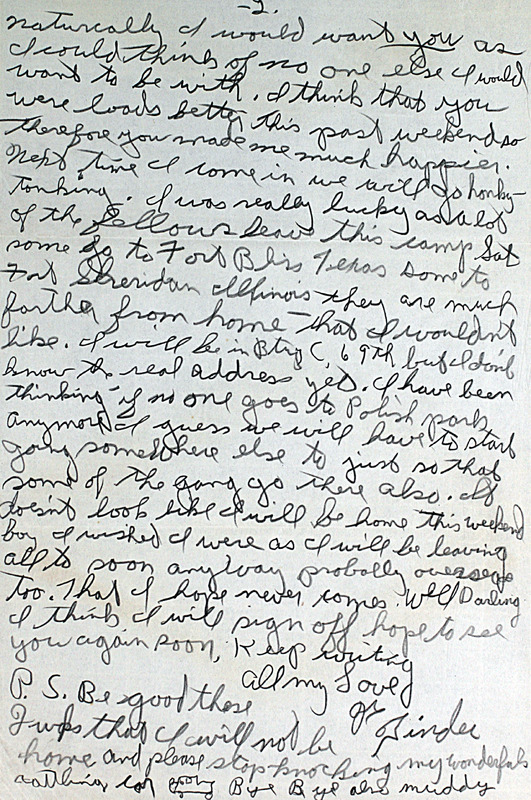 -2-
naturally I would want you as
I could think of no one else I would
want to be with. I think that you
were loads better this past weekend so
therefore you made me much happier.
Next time I come in we will go honky-
tonking. I was really lucky as a lot
of the fellows leave this camp Sat
some go to Fort Bliss Texas some to
Fort Sheridan Illinois they are much
farther from home that I wouldn't
like. I will be in Btry C, 69th but I don't
know the real address yet. I have been
thinking if no one goes to Polish park
anymore I guess we will have to start
going somewhere else to just so that
some of the gang go there also. It
doesn't look like I will be home this weekend
boy I wished I were as I will be leaving
all to soon anyway probally overseas
too. That I hope never comes. Well Darling
I think I will sign off hope to see
you again soon, Keep writing
All my Love
P. S. Be good these
2 wks that I will not be
home and please stop knocking my wonderful
Bye Bye also muddy